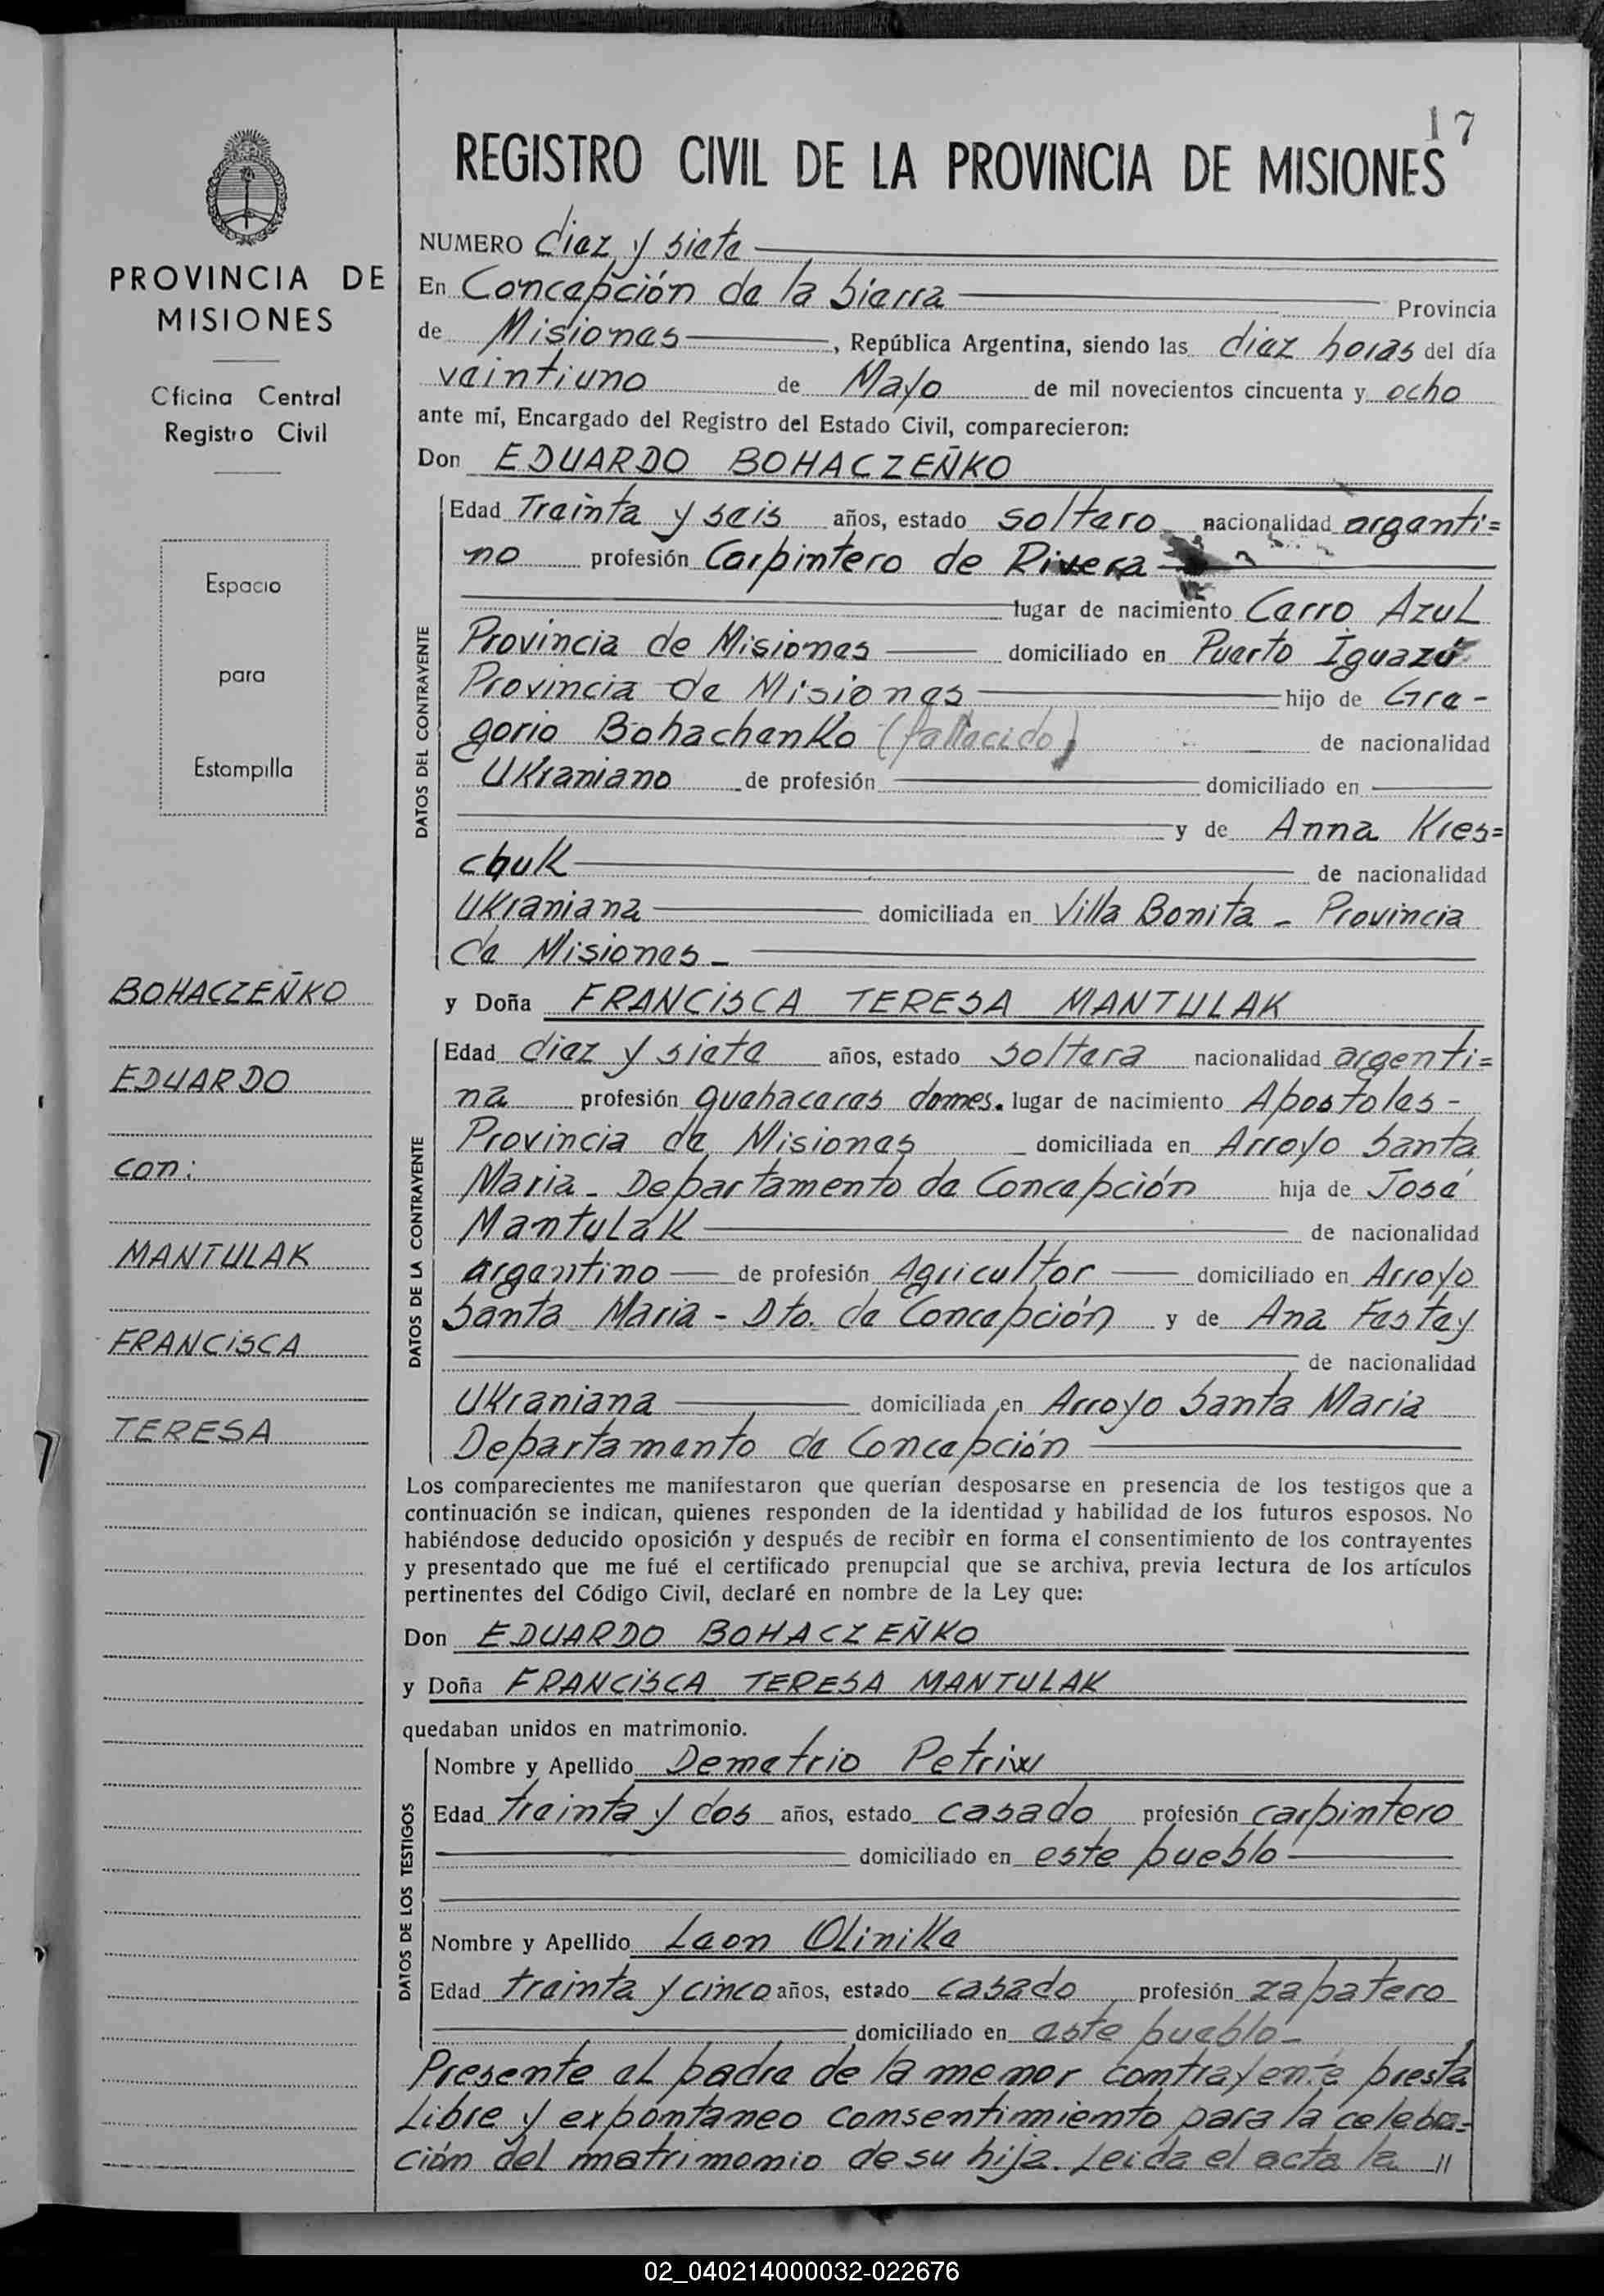 17
REGISTRO CIVIL DE LA PROVINCIA DE MISIONES
PROVINCIA DE
MISIONES
Oficina Central
Registro Civil
Espacio
para
Estampilla
BOHACZEÑKO
EDUARDO
con:
MANTULAK
FRANCISCA
TERESA
NUMERO diez y siete
En Concepción de la Sierra Provincia
de Misiones, República Argentina, siendo las diez horas del día
veintiuno de Mayo de mil novecientos cincuenta y ocho
ante mí, Encargado del Registro del Estado Civil, comparecieron:
Don EDUARDO BOHACZEÑKO
DATOS DEL CONTRAYENTE
Edad Treinta y seis años, estado soltero nacionalidad argenti=
no profesión Carpintero de Rivera
lugar de nacimiento Cerro AZUL
Provincia de Misiones domiciliado en Puerto Iguazú
Provincia de Misiones hijo de Gre-
gorio Bohachenko (fallecido) de nacionalidad
Ukraniano de profesión domiciliado en
y de Anna Kres=
chuk de nacionalidad
Ukraniana domiciliada en Villa Bonita - Provincia
de Misiones -
y Doña FRANCISCA TERESA MANTULAK
DATOS DE LA CONTRAYENTE
Edad diez y siete años, estado soltera nacionalidad argenti=
na profesión quehaceres domes. lugar de nacimiento Apostoles -
Provincia de Misiones domiciliada en Arroyo Santa
Maria - Departamento de Concepción hija de José
Mantulak de nacionalidad
argentino de profesión Agricultor domiciliado en Arroyo
Santa Maria - Dto. de Concepción y de Ana Festey
de nacionalidad
Ukraniana domiciliada en Arroyo Santa Maria
Departamento de Concepción
Los comparecientes me manifestaron que querían desposarse en presencia de los testigos que a
continuación se indican, quienes responden de la identidad y habilidad de los futuros esposos. No
habiéndose deducido oposición y después de recibir en forma el consentimiento de los contrayentes
y presentado que me fué el certificado prenupcial que se archiva, previa lectura de los artículos
pertinentes del Código Civil, declaré en nombre de la Ley que:
Don EDUARDO BOHACZEÑKO
y Doña FRANCISCA TERESA MANTULAK
quedaban unidos en matrimonio.
DATOS DE LOS TESTIGOS
Nombre y Apellido Demetrio Petriw
Edad treinta y dos años, estado casado profesión carpintero
domiciliado en este pueblo
Nombre y Apellido Leon Olinike
Edad treinta y cinco años, estado casado profesión zapatero
domiciliado en este pueblo -
Presente el padre de la menor contrayente presta
Libre y expontaneo consentimiento para la celebra=
ción del matrimonio de su hija. Leida el acta la "
02_040214000032-022676